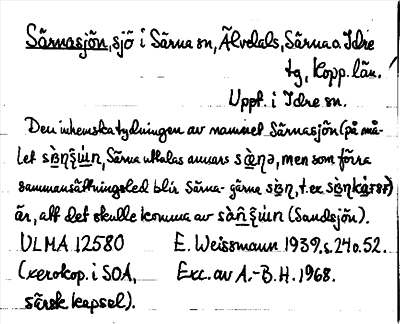 Särnasjön, sjö i Särna sn, Älvdals, Särna o. Idre
tg, Kopp. län.
Uppt. i Idre sn.
Den inhemska tydningen av namnet Särnasjön (på må-
let, Särna uttalas annars, men som förra
sammansättningsled blir Särna- gärna, t.ex.
är, att det skulle komma av (Sandsjön).
ULMA 12580 E. Weissmann 1939, s. 24 o. 52.
(xerokop. i SOA, Exc. av A.-B. H. 1968.
särsk kapsel).